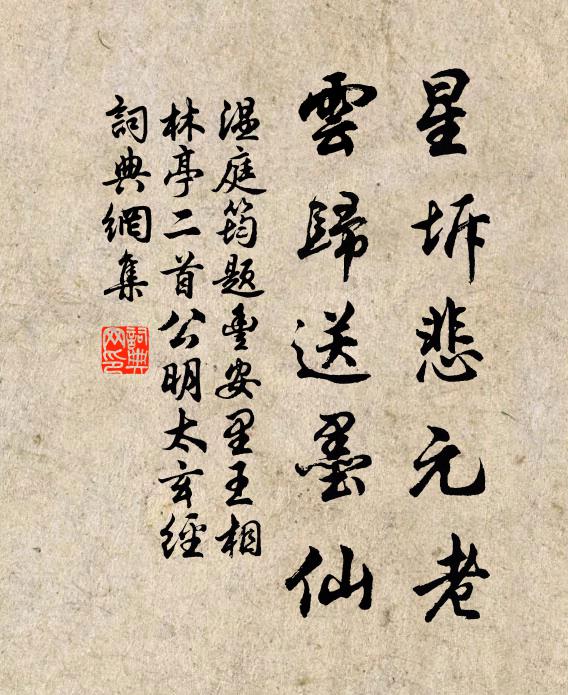 星坼悲元老
雲歸送墨仙
温庭筠題豐安里王相
林亭二首公明太玄經
詞典網集
詞典網印